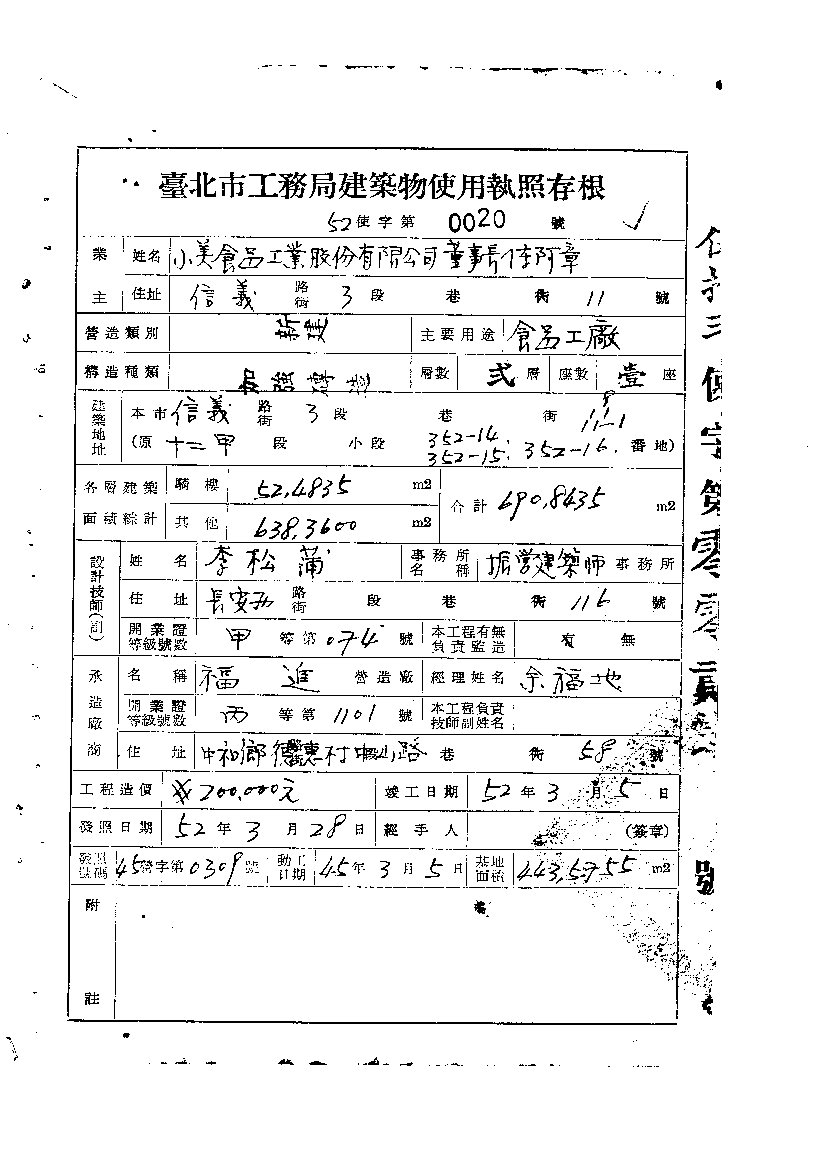 臺北市工務局建築物使用執照存根
52使字第 0020 號
業主 姓名 小美食品工業股份有限公司董事長
住址 信義 路街 3段 巷 街 11 號
營造類別 新建 主要用途 食品工廠
構造種類 層數 弍層 座數 壹座
建築地址 本市信義 路街 3段 巷 街 11-1
(原 十二甲 段 小段 352-14. 352-15. 352-16. 番地)
各層建築面積綜計 騎樓 52.4835 m2 合計 690.8435 m2
其他 638.3600 m2
設計技師(副) 姓名 李松蒲 事務所名稱 振営建築師事務所
住址 長安 路街 段 巷 街 116 號
開業證等級號數 甲 等第 074 號 本工程有無負責監造 有 無
承造廠商 名稱 福進 營造廠 經理姓名 余福地
開業證等級號數 丙 等第 1101 號 本工程負責技師副姓名
住址 中和鄉德 村中山路 巷 街 58 號
工程造價 200,000元 竣工日期 52年3月5日
發照日期 52年3月28日 經手人 (簽章)
發照號碼 45營字第0309號 動工日期 45年3月5日 基地面積 443.5755 m2
附註
使字第零零 號